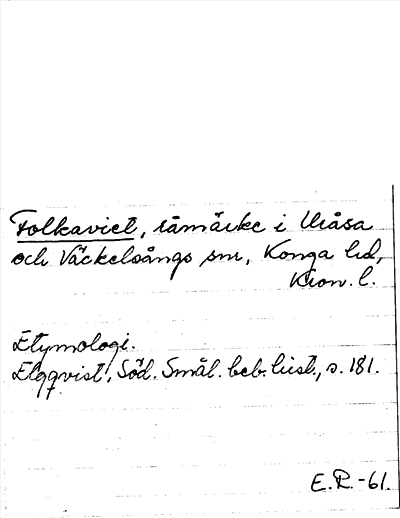 Folkaviet, råmärke i Uråsa
och Väckelsångs snr, Konga hd,
Kron. l.
Etymologi.
Elgqvist, Söd. Smål. beb. hist., s. 181.
E.R.-61.